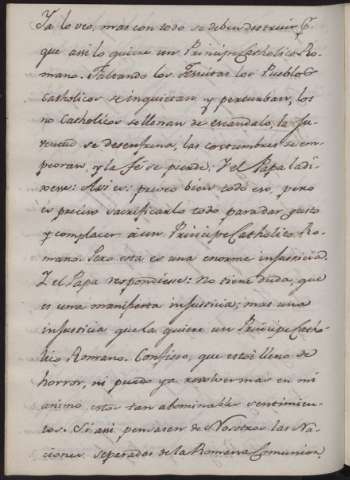 Ya lo veo, mas con todo se deben destruir, pq.
que assi lo quiere un Principe Catholico Ro-
mano. Faltando los Jesuitas los Pueblos
Catholicos se inquietan y perturban, los
no Catholicos se llenan de escandalo, la Ju-
ventud se desenfrena, las costumbres se em-
peoran, y la fé se pierde: Y el Papa la di-
: Assi es: preveo bien todo eso, pero
es preciso sacrificarlo todo, para dar gusto
y complacer à un Principe Catholico Ro-
mano. Pero esta es una enorme injusticia.
Y el Papa respondiese: No tiene duda, que
es una manifiesta injusticia; mas una
injusticia que la quiere un Principe Catho-
lico Romano. Confieso, que estoi lleno de
horror, ni puedo ya resolverme en mi
animo estos tan abominables sentimien-
tos. Si assi pensasen de Nosotros las Na-
ciones separadas de la Romana Comunion